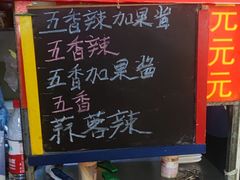 五香辣加果酱
五香辣
五香加果酱
五香
蒜蓉辣
元
元
元